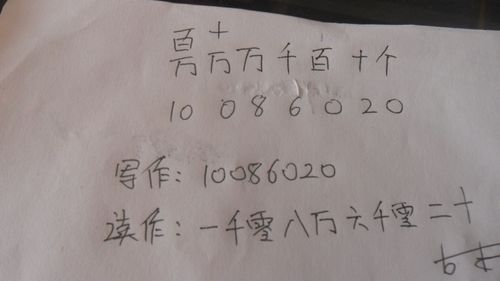 百 十
万 万 万 千 百 十 个
10 0 8 6 0 2 0
写作：10086020
读作：一千零八万六千零二十